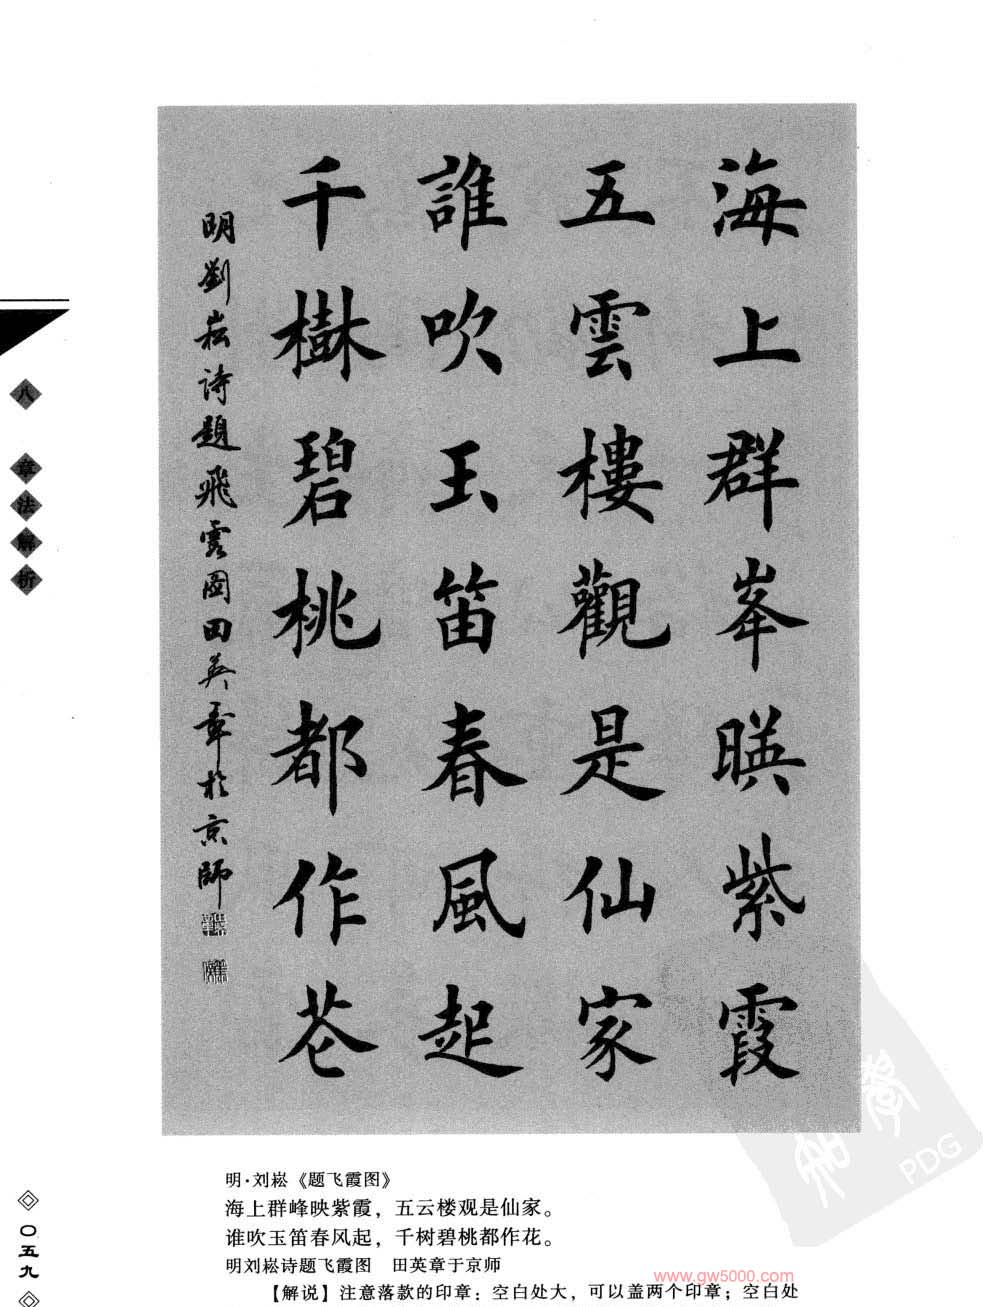 海上群峯暎紫霞
五雲樓觀是仙家
誰吹玉笛春風起
千樹碧桃都作花
明劉崧詩題飛霞圖田英章於京師
八 章法解析
〇五九
明·刘崧《题飞霞图》
海上群峰映紫霞，五云楼观是仙家。
谁吹玉笛春风起，千树碧桃都作花。
明刘崧诗题飞霞图 田英章于京师
【解说】注意落款的印章：空白处大，可以盖两个印章；空白处
www.gw5000.com
PDG